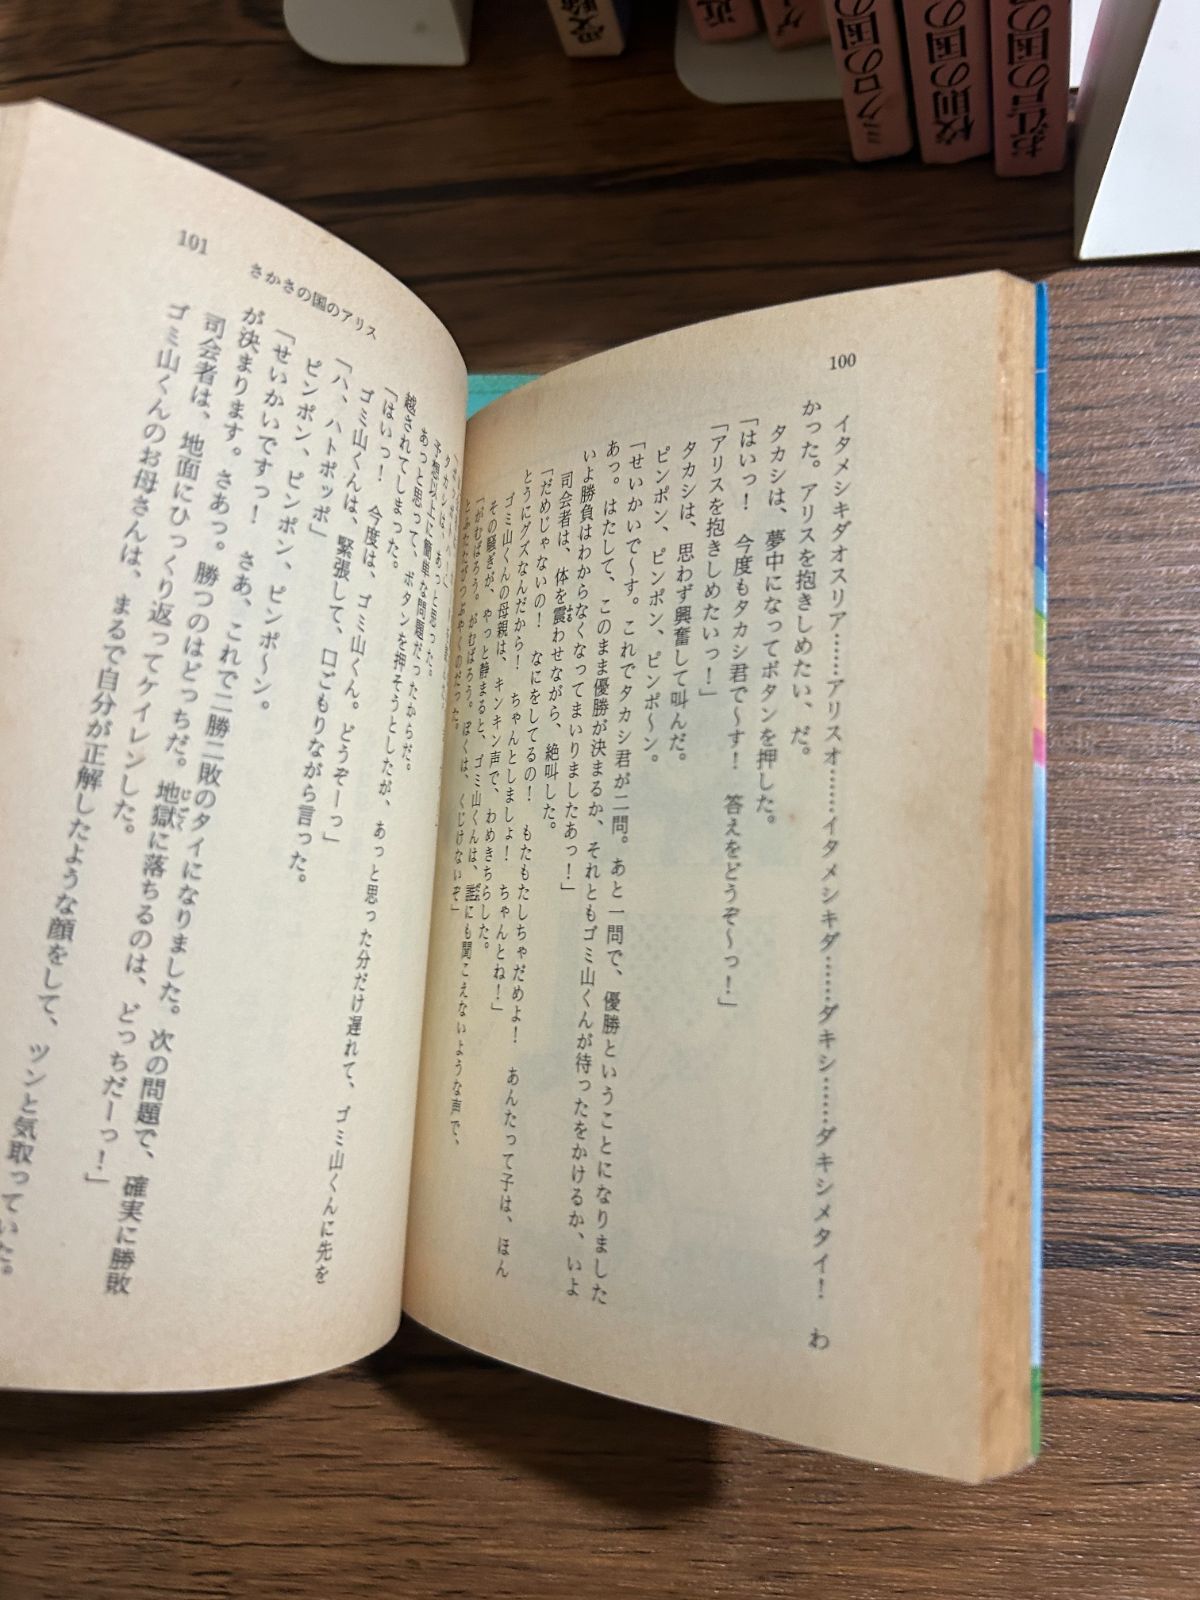 受験
近
ゲー
ミクロの国の
校則の国の
お江戸の国の
100
イタメシキダオスリア……アリスオ……イタメシキダ……ダキシ……ダキシメタイ！　わ
かった。アリスを抱きしめたい、だ。
タカシは、夢中になってボタンを押した。
「はいっ！　今度もタカシ君で〜す！　答えをどうぞ〜っ！」
「アリスを抱きしめたいっ！」
タカシは、思わず興奮して叫んだ。
ピンポン、ピンポン、ピンポ〜ン。
「せいかいで〜す。これでタカシ君が二問。あと一問で、優勝ということになりました
あっ。はたして、このまま優勝が決まるか、それともゴミ山くんが待ったをかけるか、いよ
いよ勝負はわからなくなってまいりましたあっ！」
司会者は、体を震わせながら、絶叫した。
「だめじゃないの！　なにをしてるの！　もたもたしちゃだめよ！　あんたって子は、ほん
とうにグズなんだから！　ちゃんとしましょ！　ちゃんとね！」
ゴミ山くんの母親は、キンキン声で、わめきちらした。
その騒ぎが、やっと静まると、ゴミ山くんは、誰にも聞こえないような声で、
「がむばろう。がむばろう。ぼくは、くじけないぞ」
とふたたびつぶやくのだった。
101
さかさの国のアリス
タカシは、あっと思った。
予想以上に簡単な問題だったからだ。
あっと思って、ボタンを押そうとしたが、あっと思った分だけ遅れて、ゴミ山くんに先を
越されてしまった。
「はいっ！　今度は、ゴミ山くん。どうぞーっ」
ゴミ山くんは、緊張して、口ごもりながら言った。
「ハ、ハトポッポ」
ピンポン、ピンポン、ピンポ〜ン。
「せいかいですっ！　さあ、これで二勝二敗のタイになりました。次の問題で、確実に勝敗
が決まります。さあっ。勝つのはどっちだ。地獄に落ちるのは、どっちだーっ！」
司会者は、地面にひっくり返ってケイレンした。
ゴミ山くんのお母さんは、まるで自分が正解したような顔をして、ツンと気取っていた。